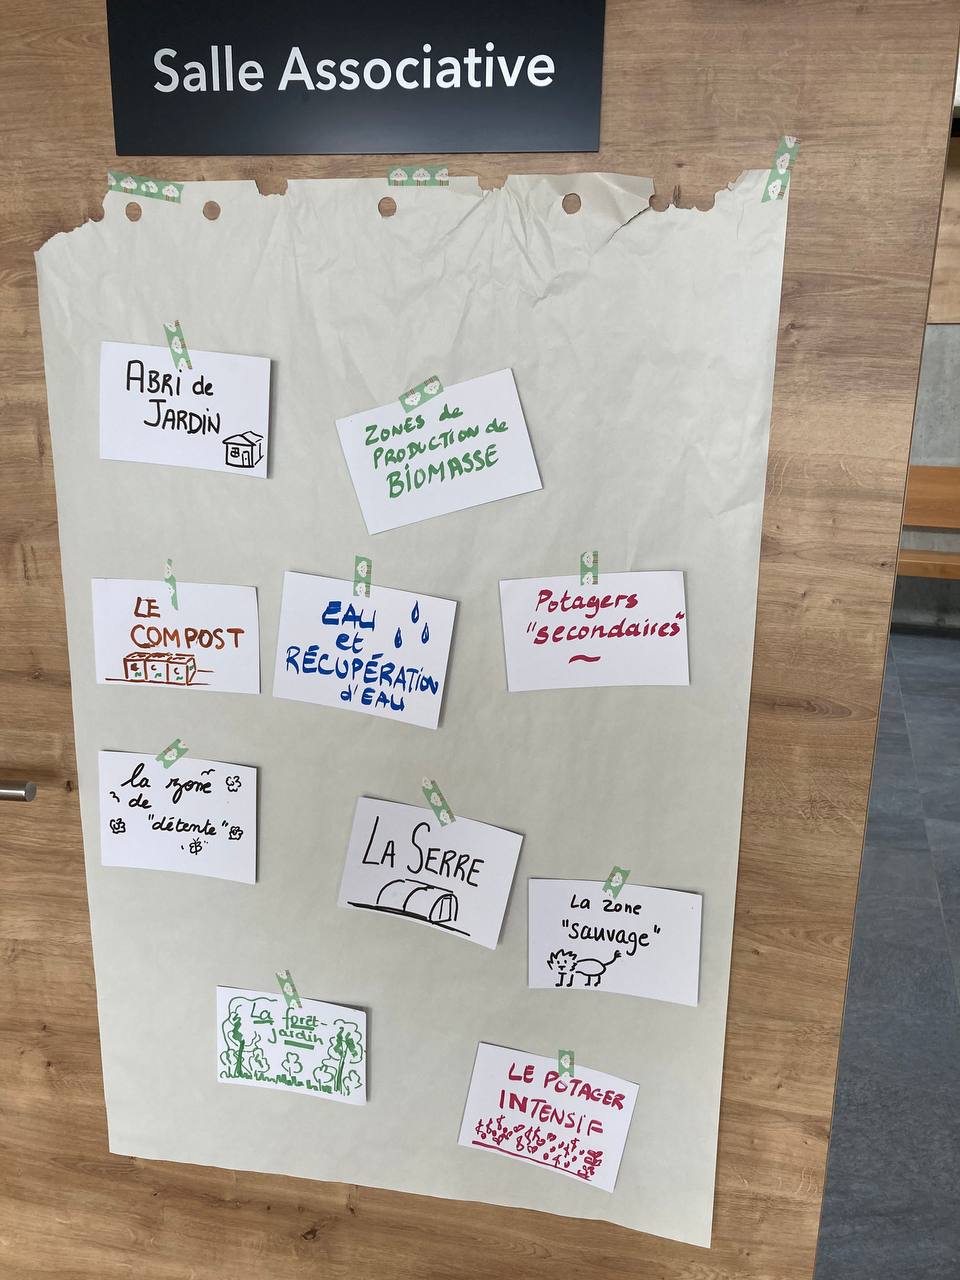 Salle Associative
ABRI de
JARDIN
ZONES de
PRODUCTION de
BIOMASSE
LE
COMPOST
EAU
et
RÉCUPÉRATION
d'EAU
Potagers
"secondaires"
la zone
de
"détente"
LA SERRE
La Zone
"sauvage"
La forêt-
jardin
LE POTAGER
INTENSIF